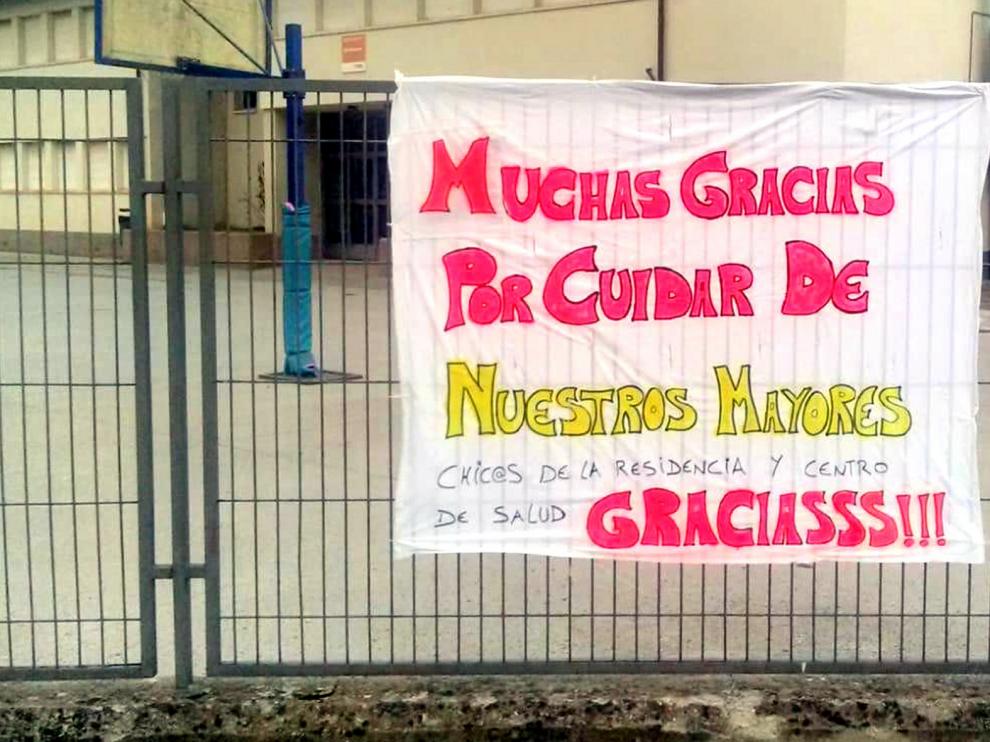 MUCHAS GRACIAS
POR CUIDAR DE
NUESTROS MAYORES
CHIC@S DE LA RESIDENCIA Y CENTRO
DE SALUD GRACIASSS!!!